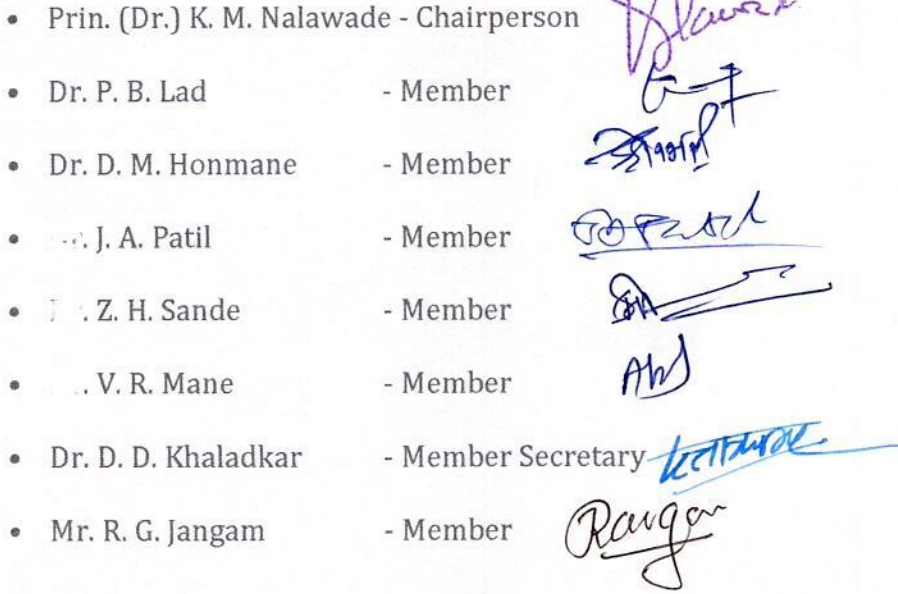 • Prin. (Dr.) K. M. Nalawade - Chairperson
• Dr. P. B. Lad - Member
• Dr. D. M. Honmane - Member
• . J. A. Patil - Member
• . Z. H. Sande - Member
• . V. R. Mane - Member
• Dr. D. D. Khaladkar - Member Secretary
• Mr. R. G. Jangam - Member